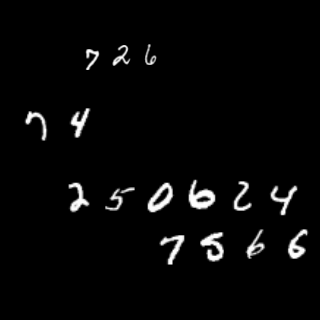 726
74
250624
7566